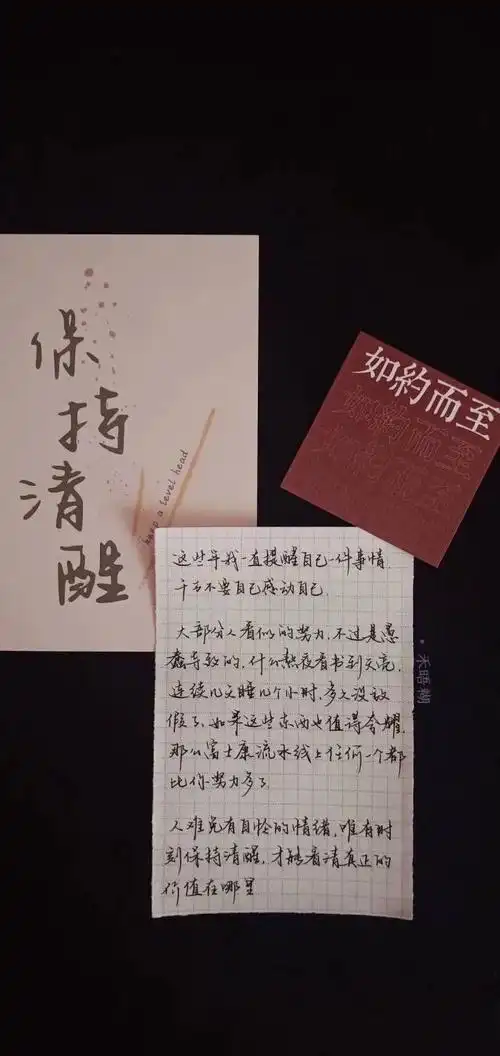 保
持
清
醒
keep a level head
如約而至
如約而至
如約而至
这些年我一直提醒自己一件事情
千万不要自己感动自己
大部分人看似的努力,不过是愚
蠢导致的,什么熬夜看书到天亮,
连续几天睡几个小时,多久没放
假了,如果这些东西也值得夸耀,
那么富士康流水线上任何一个都
比你努力多了
人难免有自怜的情绪,唯有时
刻保持清醒,才能看清真正的
价值在哪里
禾晤糊